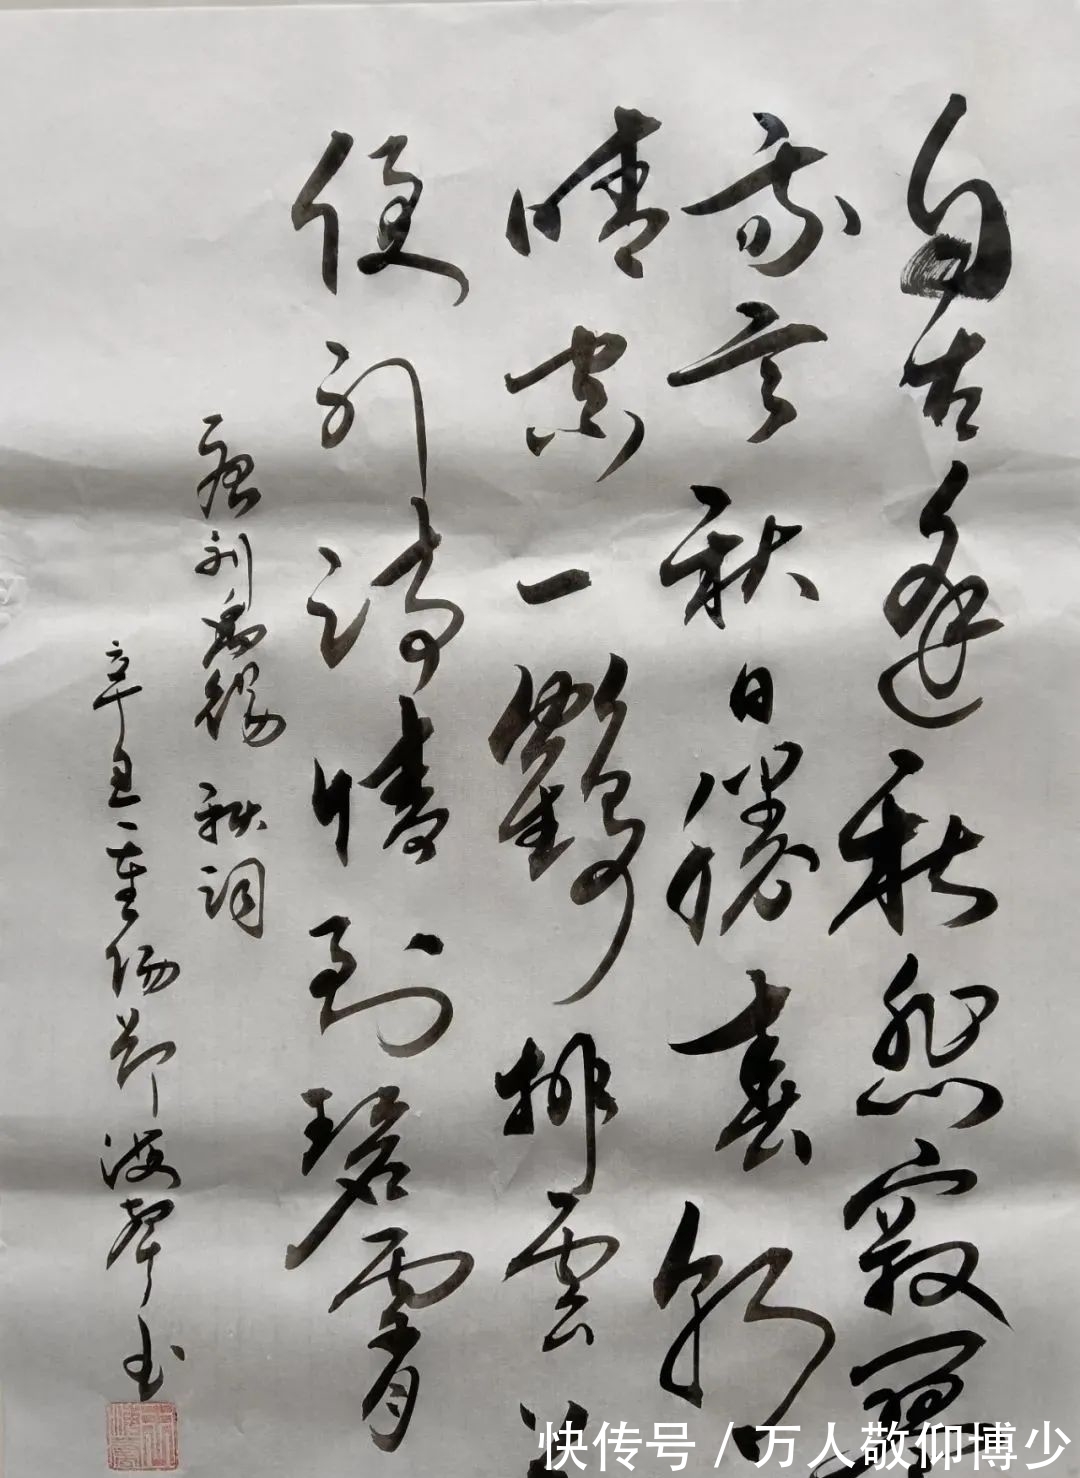 自古逢秋悲寂寥
我言秋日勝春朝
晴空一鶴排雲上
便引詩情到碧霄
唐刘禹锡 秋词
辛丑重阳
快传号 / 万人敬仰博少